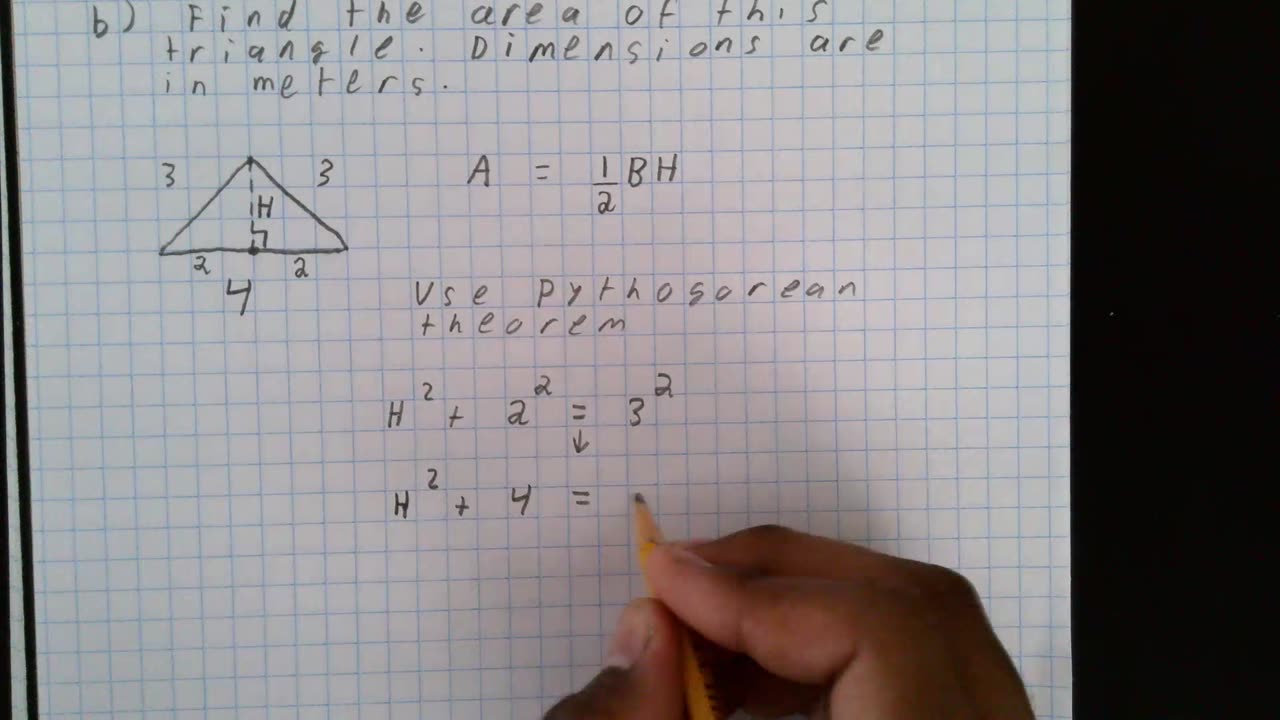 b) Find the area of this
triangle. Dimensions are
in meters.
3 3
H
2 2
4
A = 1/2 BH
Use pythogorean
theorem
H² + 2² = 3²
↓
H² + 4 =